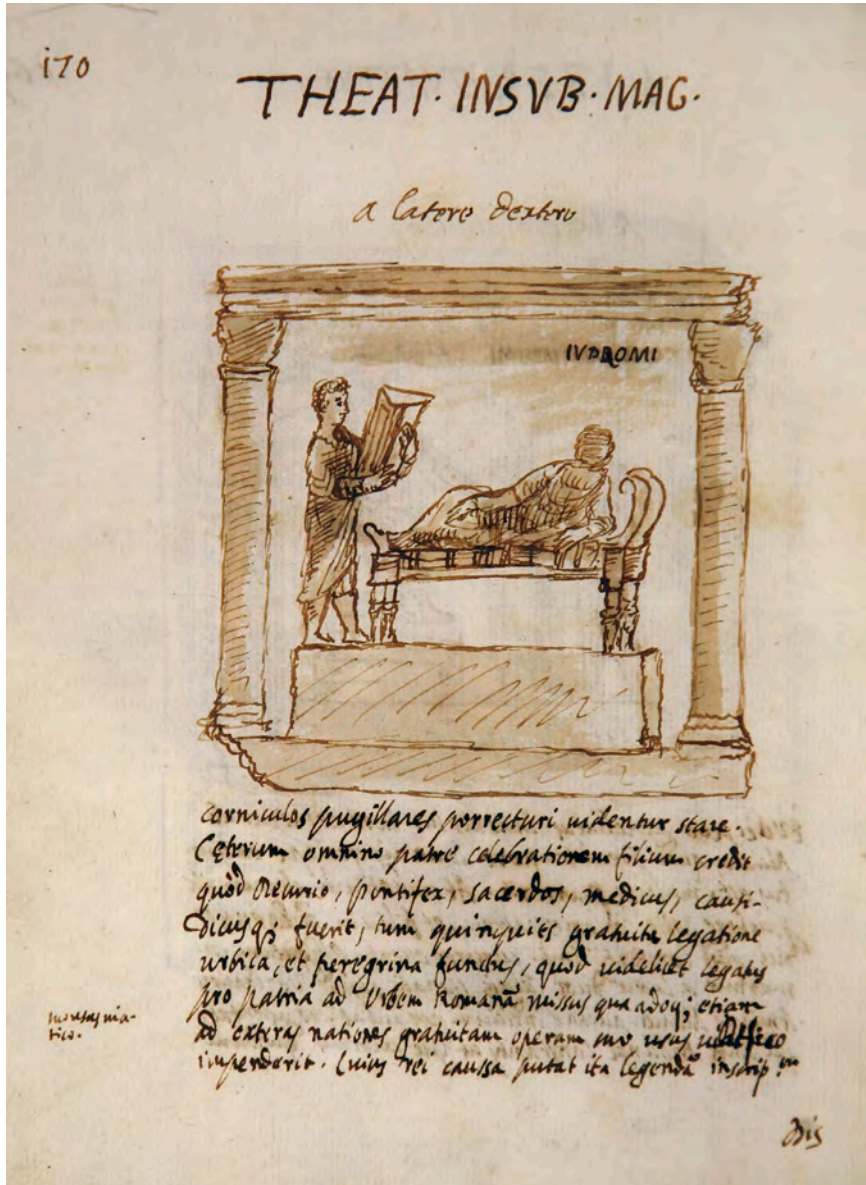 i70
THEAT. INSVB. MAG.
a latere dextero
IVDROMI
corniculos pugillares porrecturi uidentur stare.
Cęterum omnino patre celebrationem filium credit
quòd Decurio, pontifex, sacerdos, medicus, causi-
dicusq; fuerit, tum quinquies gratuita legatione
urbica, et peregrina functus, quòd uidelicet legatus
pro patria ad Vrbem Romanã missus quadoq; etiam
ad exteras nationes gratuitam operam suo usus
impenderit. Cuius rei caussa putat ita legendã inscrip.em
Dis